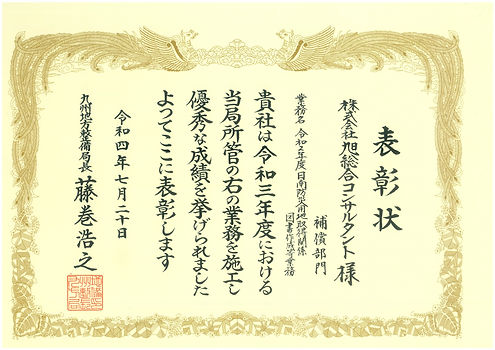 表彰状
株式会社旭総合コンサルタント 様
補償部門
業務名 令和2年度日南防災用地取得関係
図書作成等業務
貴社は令和三年度における
当局所管の右の業務を施工し
優秀な成績を挙げられました
よってここに表彰します
令和四年七月二十日
九州地方整備局長 藤巻浩之